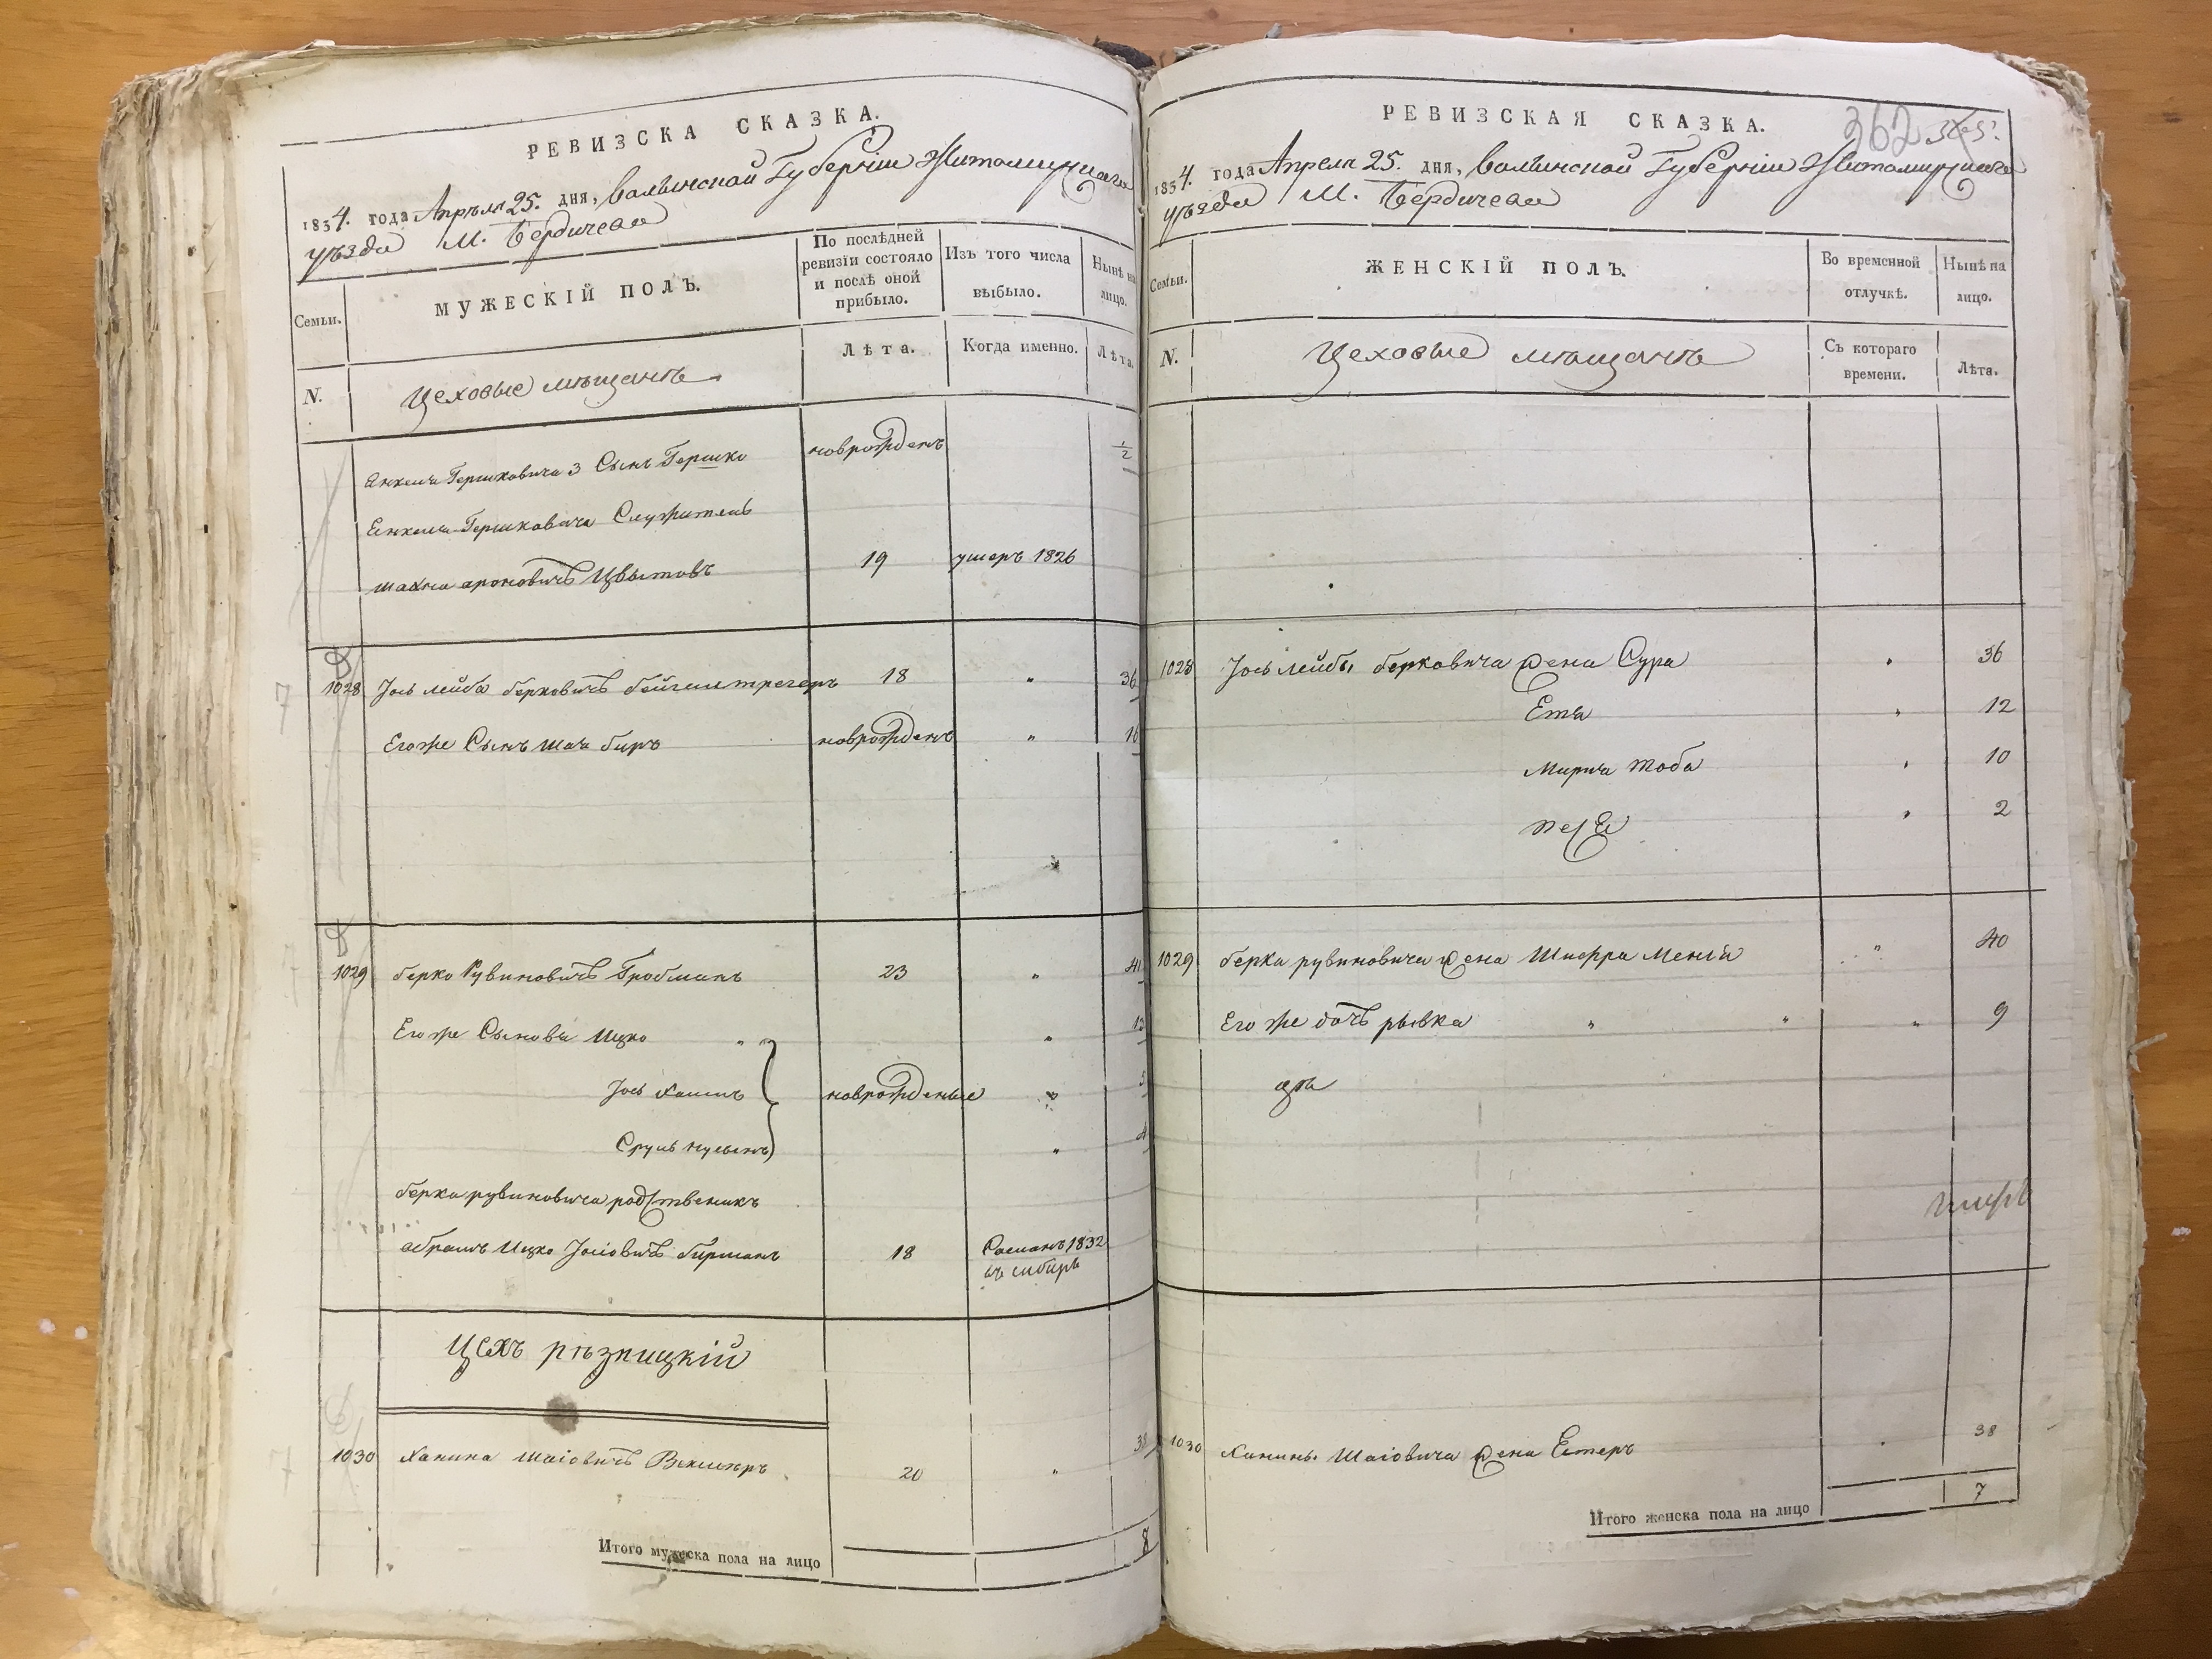 РЕВИЗСКА СКАЗКА.
1834. года Апрѣля 25. дня, Волынской Губерніи Житомирскаго
уѣзда М. Бердичева
Семьи.
МУЖЕСКІЙ ПОЛЪ.
По послѣдней
ревизіи состояло
и послѣ оной
прибыло.
Изъ того числа
выбыло.
Нынѣ на
лицо.
N.
Цеховые мѣщанѣ
Лѣта.
Когда именно.
Лѣта.
Янкеля Гершковича 3 Сынъ Гершко новрожденъ 1/2
Енкеля Гершковича Служитель
Шахна Ароновичъ Цвытовъ 19 умеръ 1826
1028 Іось Лейба Берковичъ Бейгельтрегеръ 18 " 36
Егоже Сынъ новрожденъ " 16
1029 Берко Рувиновичъ Гробманъ 23 "
Егоже Сынова Ицко " "
Іось Хаимъ новрожденые "
Сруль Нусынъ "
Берка Рувиновича родственикъ
Абрамъ Ицко Іосіовичъ Бирманъ 18 Сосланъ 1832
въ сибирь
Цехъ рѣзницкій
1030 Ханина Шаіовичъ Векслеръ 20 " 38
Итого мужеска пола на лицо 8
РЕВИЗСКАЯ СКАЗКА.
362
1834. года Апреля 25. дня, Волынской Губерніи Житомирскаго
уѣзда М. Бердичева
Семьи.
ЖЕНСКІЙ ПОЛЪ.
Во временной
отлучкѣ.
Нынѣ на
лицо.
N.
Цеховые мѣщанѣ
Съ котораго
времени.
Лѣта.
1028 Іось Лейбы Берковича жена Сура " 36
Етя " 12
Мирля Тоба " 10
" 2
1029 Берка Рувиновича жена Шифра Меній " 40
Егоже дочь Рывка " " " 9
1030 Ханины Шаіовича жена Естеръ " 38
Итого женска пола на лицо 7